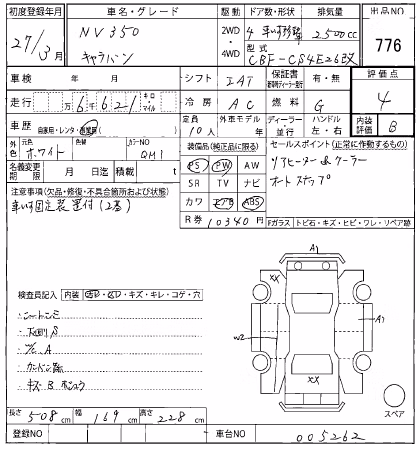 初度登録年月 車名・グレード 駆動 ドア数・形状 排気量 出品NO
27/3月 NV350 キャラバン 2WD・4WD 4 2500cc 776
型式 CBF-CS4E26改
車検 年 月 シフト IAT 保証書 有・無 評価点
走行 万6千621 キロ・マイル 冷房 AC 燃料 G 4
車歴 自家用・レンタ・ 定員 10人 外車モデル 年 ディーラー 並行 ハンドル 左・右 内装評価 B
外色 元色 ホワイト 色替 カラーNO QM1
装備品(純正品に限る) セールスポイント(正常に作動するもの)
名義変更期限 月 日迄 積載 t
PS PW AW リアヒーター&クーラー
SR TV ナビ オートステップ
カワ エアB ABS
R券 10340円
注意事項(欠品・修復・不具合箇所および状態)
車いす固定装置付(2基)
Fガラス トビ石・キズ・ヒビ・ワレ・リペア跡
検査員記入 内装 キズ・キレ・コゲ・穴
A1
XX
A1
W2
XX
スペア
・シートシミ
・下廻りS
・A
・キズ
長さ 508cm 幅 169cm 高さ 228cm
登録NO 車台NO 005262